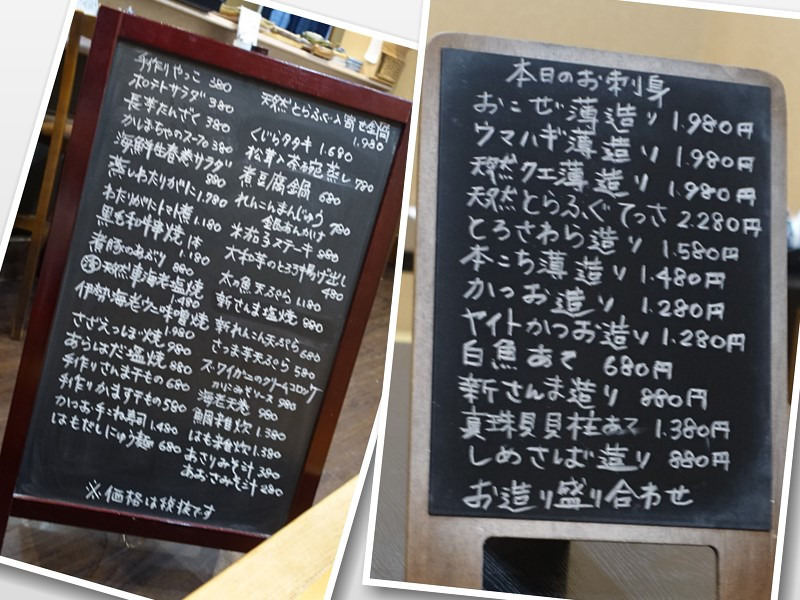 手作りやっこ 380
ポテトサラダ 380
長芋たんざく 380
かぼちゃのスープ 380
海鮮生春巻サラダ
880
蒸しわたりがに 1.780
わたりがにトマト煮 1.180
黒毛和牛串焼 1本
1.180
880
天然車海老塩焼
1.480
伊勢海老ウニ味噌焼
1.980
さざえつぼ焼 980
あらはだ塩焼 880
手作りさんま干もの 680
手作りかます干もの 580
かつお手こね寿司 1.480
はもだしにゅう麺 680
天然とらふぐ入寄せ全鍋
1.980
くじらタタキ 1.690
松茸入茶碗蒸し 780
煮豆腐全鍋 680
れんこんまんじゅう
780
米茄子ステーキ 980
大和芋のとろろ揚げ出し
480
太刀魚天ぷら 1.180
新さんま塩焼 880
新れんこん天ぷら 680
さつま芋天ぷら 580
ズワイガニのクリームコロッケ
かにみそソース 980
海老天巻 980
鯛雑炊 1.380
はも雑炊 1.380
あさりみそ汁 380
あおさみそ汁 280
※価格は税抜です
本日のお刺身
おこぜ薄造り 1.980円
ウマハギ薄造り 1.980円
天然クエ薄造り 1.980円
天然とらふぐてっさ 2.280円
とろさわら造り 1.580円
本こち薄造り 1.480円
かつお造り 1.280円
ヤイトかつお造り 1.280円
白魚あて 680円
新さんま造り 880円
真珠貝貝柱あて 1.380円
しめさば造り 880円
お造り盛り合わせ